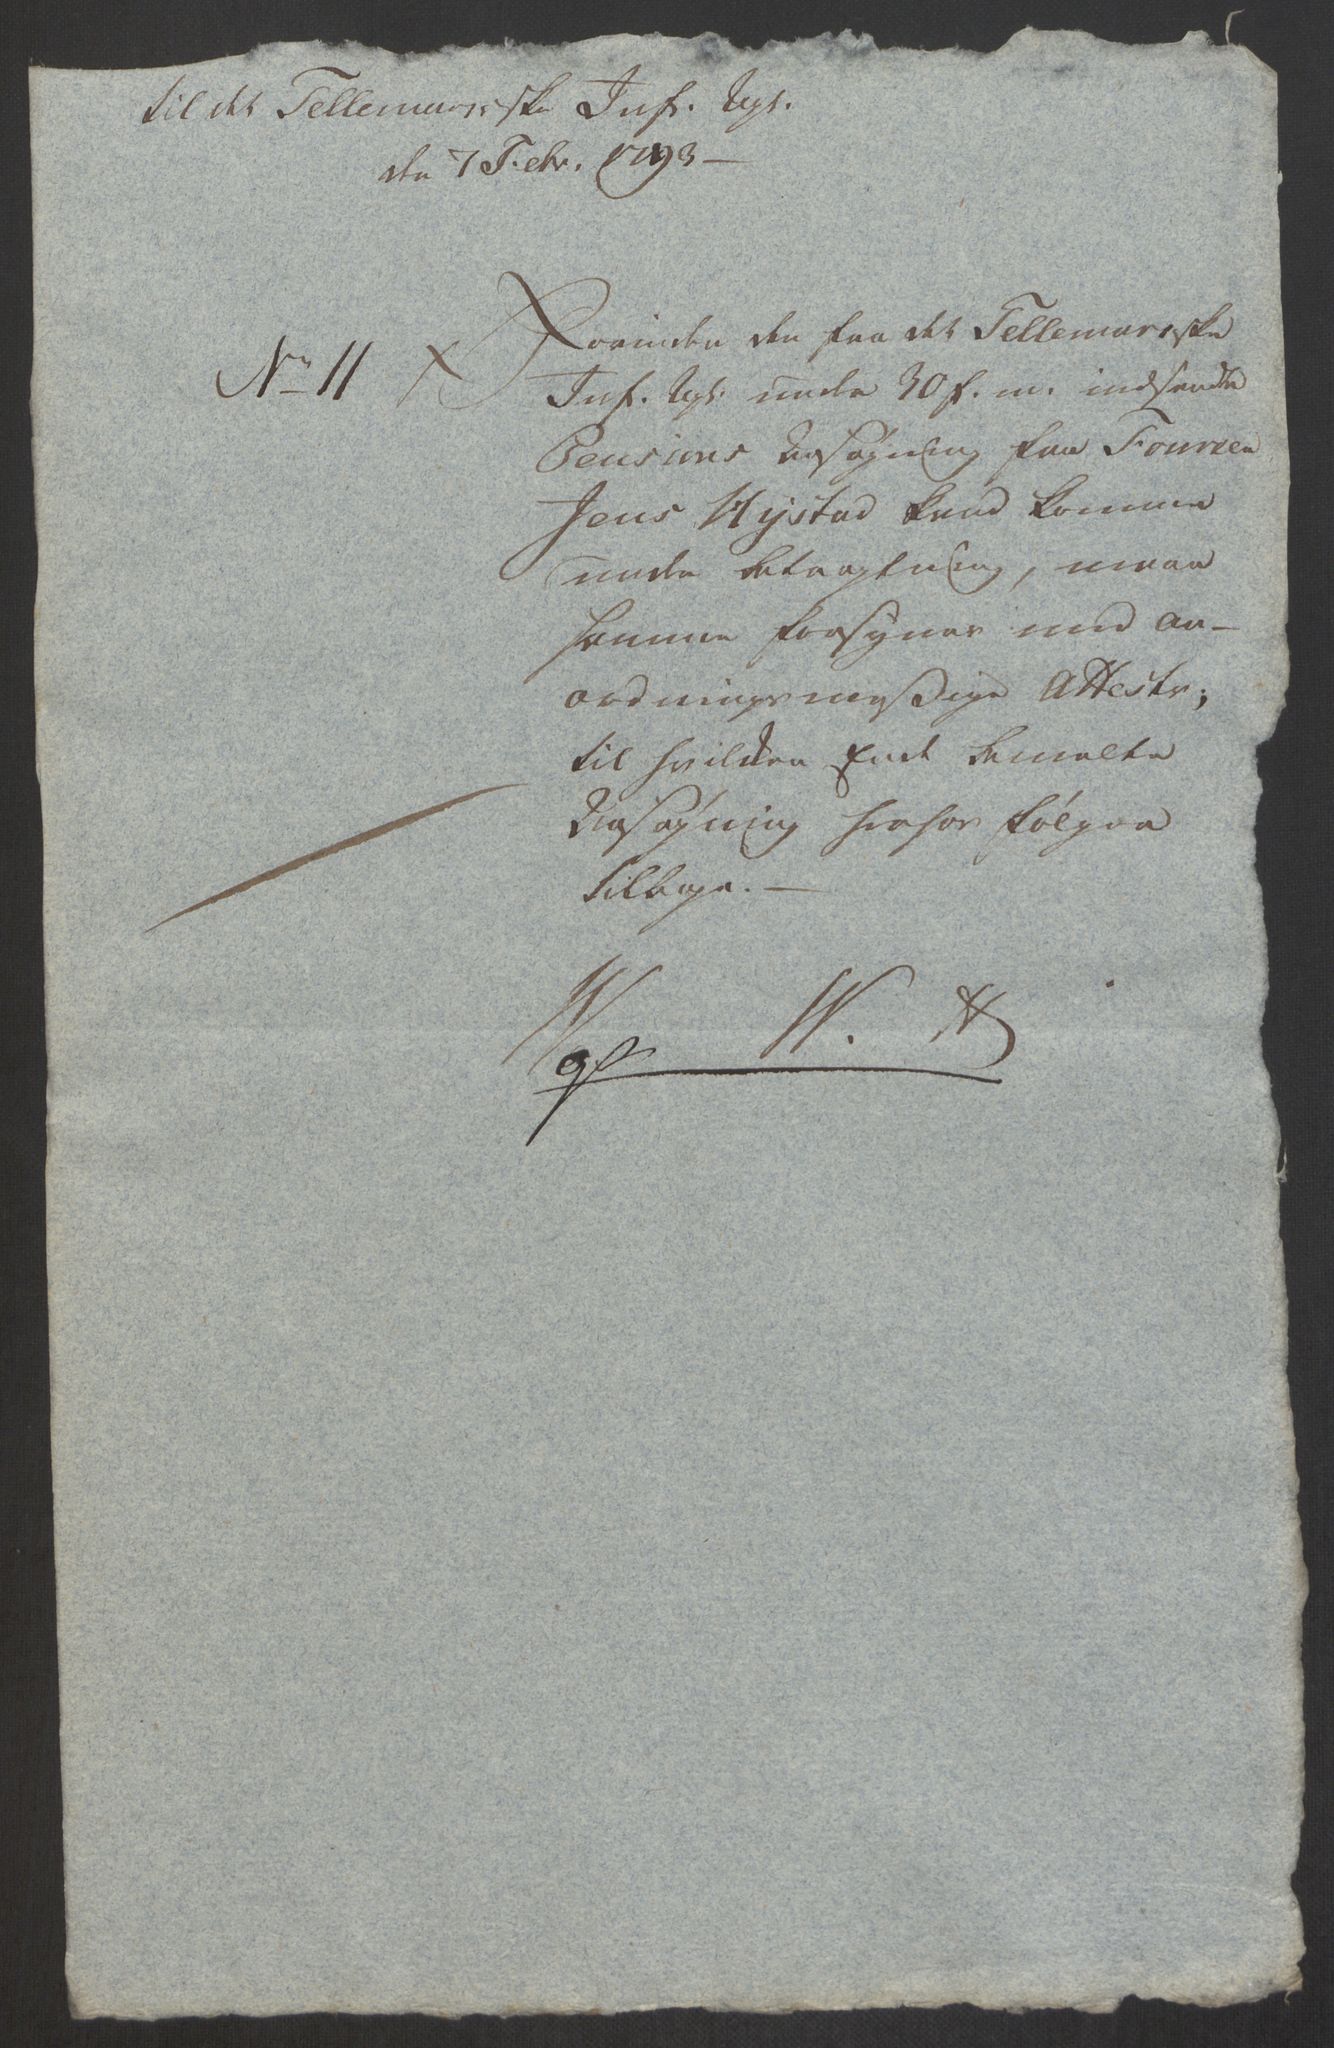 til det Tellemarkske Inf. Regt.
den 7 Febr. 1793 —
No 11 Forinden den fra det Tellemarkske
Inf. Regt. under 30 f. m. indsendte
Pensions Ansøgning fra Foureer
Jens Hystad kand komme
under betragtning, maae
samme forsynes med an-
ordningsmæssige Attester;
til hvilken Ende bemelte
Ansøgning herhos følger
tilbage. —
W. H